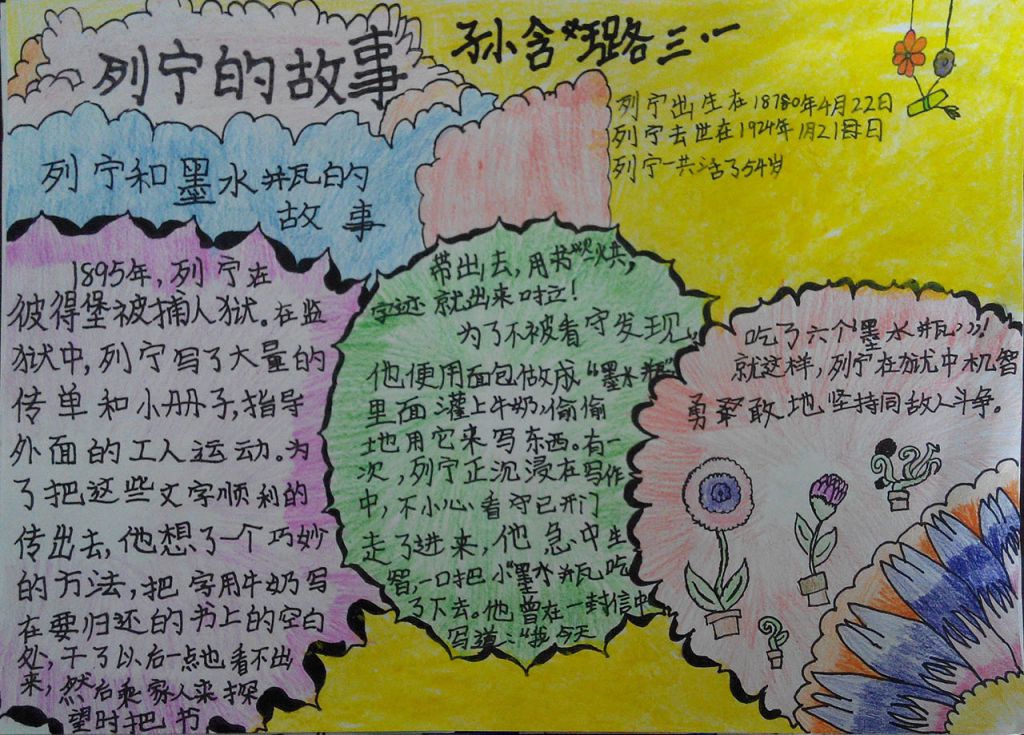 列宁的故事
孙含璐 三·一
列宁出生在18780年4月22日
列宁去世在1924年1月21日
列宁一共活了54岁
列宁和墨水瓶的
故事
1895年,列宁在
彼得堡被捕入狱。在监
狱中,列宁写了大量的
传单和小册子,指导
外面的工人运动。为
了把这些文字顺利的
传出去,他想了一个巧妙
的方法,把字用牛奶写
在要归还的书上的空白
处,干了以后一点也看不出
来,然后乘家人来探
望时把书
带出去,用书火烘,
字迹就出来啦!
为了不被看守发现,
他便用面包做成“墨水瓶”
里面灌上牛奶,偷偷
地用它来写东西。有一
次,列宁正沉浸在写作
中,不小心看守已开门
走了进来,他急中生
智,一口把小“墨水瓶吃
了下去。他曾在一封信中
写道:“我今天
吃了六个‘墨水瓶’”!
就这样,列宁在狱中机智
勇敢地坚持同敌人斗争。